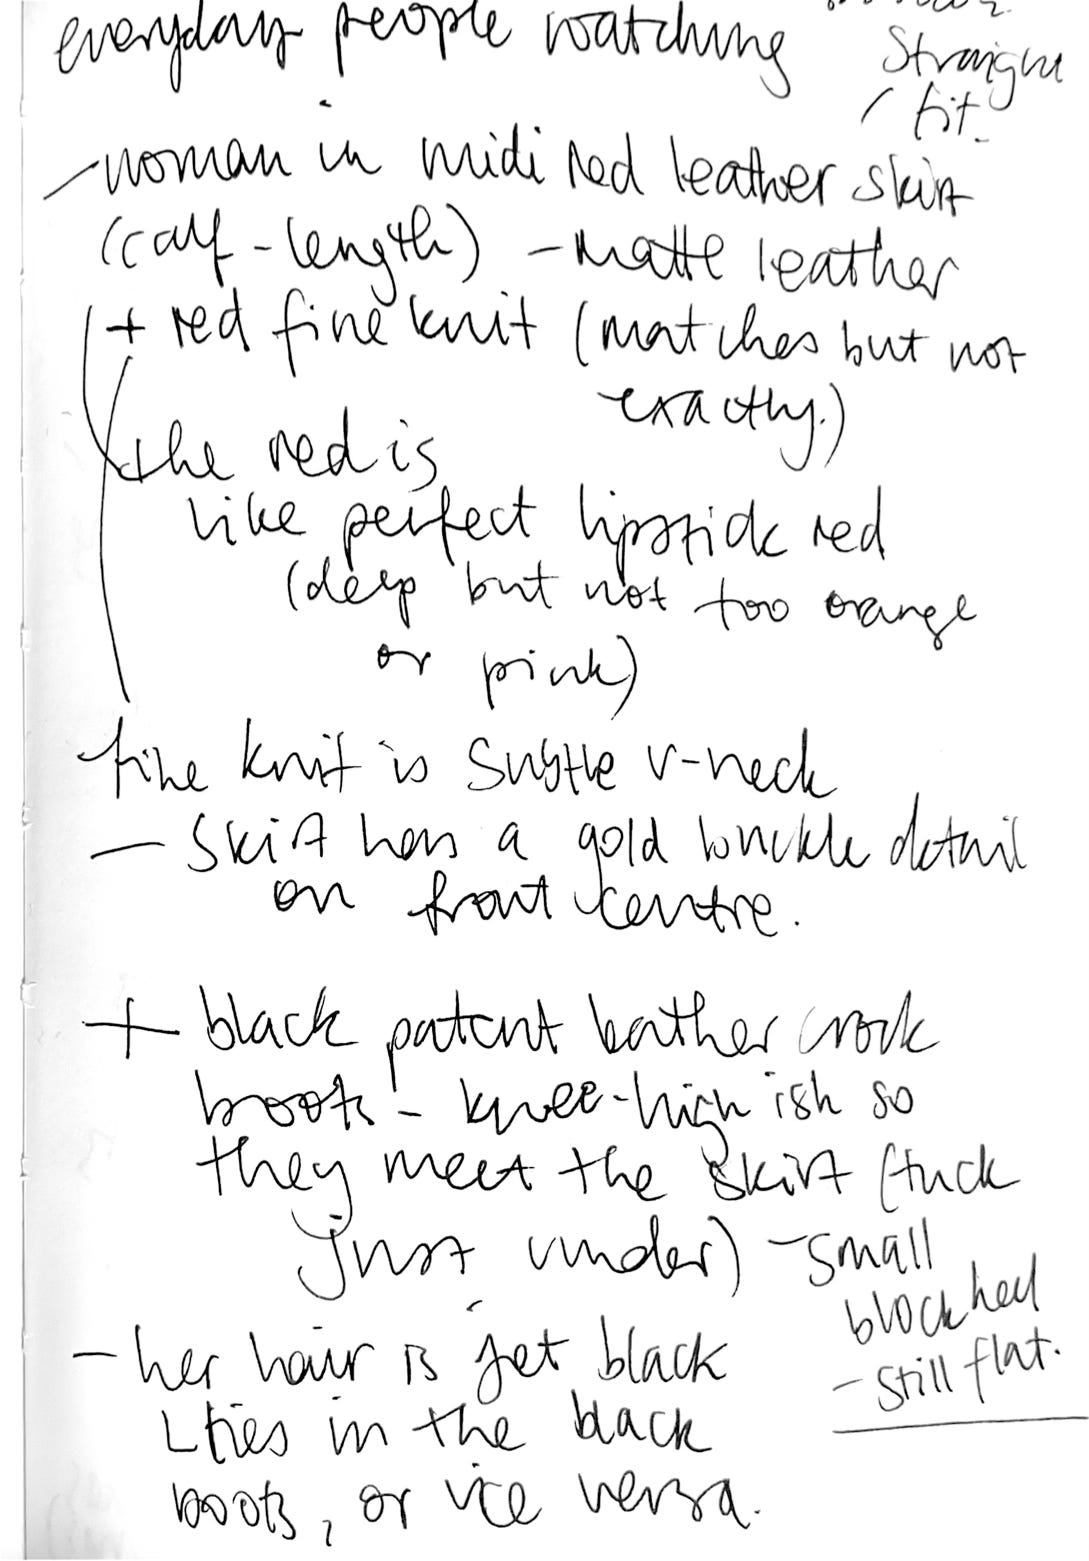 everyday people watching
Straight
fit.
- woman in midi red leather skirt
(calf-length) - matte leather
+ red fine knit (matches but not
exactly.)
the red is
like perfect lipstick red
(deep but not too orange
or pink)
fine knit is subtle v-neck
- skirt has a gold buckle detail
on front centre.
+ black patent leather crock
boots - knee-high ish so
they meet the skirt (tuck
just under) - small
block heel
- still flat.
- her hair is jet black
ties in the black
boots, or vice versa.